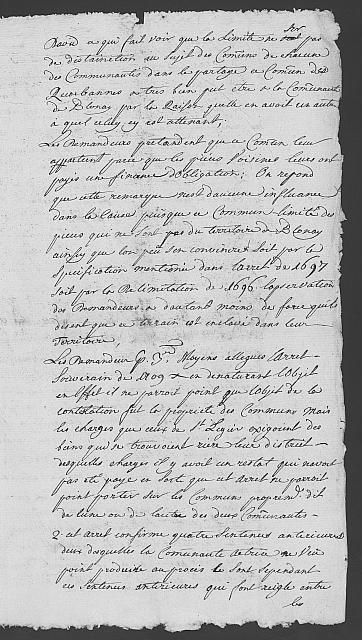 Davu a qui fait voir que la Limite ne ser pas
de distinction au sujet des Comuns de chacune
des Communautés dans le partage ce Comun de
a tres bien put être à la Comunauté
de Blonay par la Raison quelle en avoit un autre
à quel celuy cy est attenant;
Les Demandeurs pretendent que ce Comun leur
appartient parce que les pieces Voisines leurs ont
payés une finance d'obligation; On repond
que cette remarque n'est d'aucune influance
dans la Cause, puisque ce Commun Limite des
pieces qui ne sont pas du territoire de Blonay
ainsy que l'on peu s'en convincre soit par la
Specification mentionée dans larret de 1697
soit par la Delimitation de 1696 lobservation
des Demandeurs a dautant moins de force quils
disent que ce terrain est enclavé dans leur
Territoire;
Les Demandeur p. 3.e Moyens allegues l'arret
Souverain de 1709 en denaturant l'Objet
en Effet il ne parroit point que l'objet de la
contestation fut la propriété des Communs mais
les charges que ceux de St Legier exigeoent des
biens qui se trouvoient rière leur district
desquelles charges il y avoit un restat qui navoit
pas eté payé en sorte que cet Arret ne parroit
point porter sur les Commun proprem.t dit
de lune ou de lautre des deux Comunautés
2. cet arret confirme quatre Sentences anterieures
deux desquelles la Comunauté actrice ne
point produite au procès ce sont cependant
ces Sentences anterieures qui font reigle entre
les